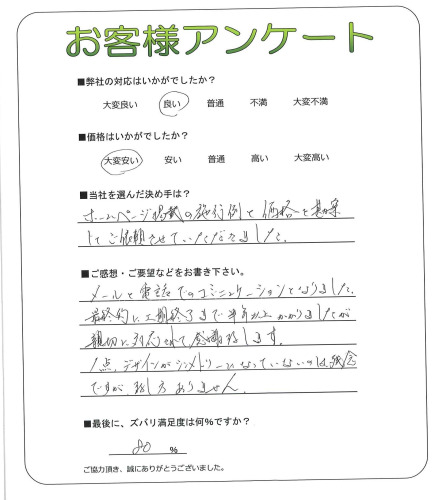 お客様アンケート
■弊社の対応はいかがでしたか?
大変良い 良い 普通 不満 大変不満
■価格はいかがでしたか?
大変安い 安い 普通 高い 大変高い
■当社を選んだ決め手は?
ホームページ掲載の施行例と価格を
してご依頼させていただきました。
■ご感想・ご要望などをお書き下さい。
メールと電話でのコミュニケーションとなりました。
最終的に工期終了まで半年以上かかりましたが
親切に対応されて感謝致します。
1点、デザインがシンメトリーになっていないのは残念
ですが、致し方ありません。
■最後に、ズバリ満足度は何%ですか?
80 %
ご協力頂き、誠にありがとうございました。